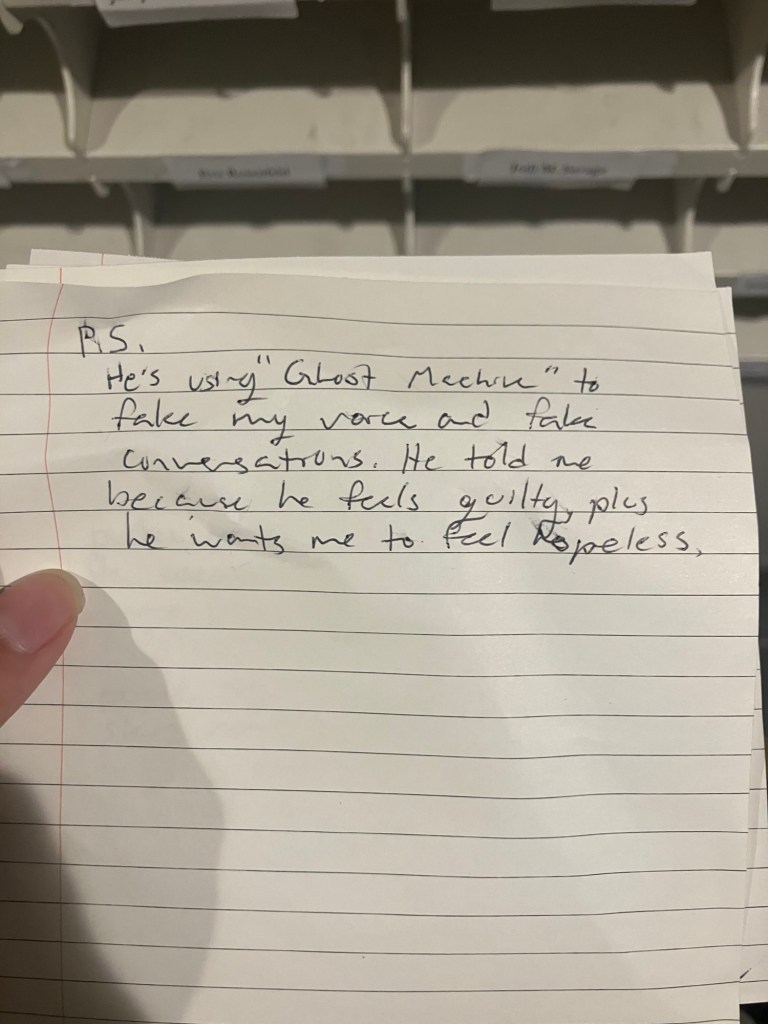 P.S.
He's using "Ghost Machine" to
fake my voice and fake
conversations. He told me
because he feels guilty, plus
he wants me to feel hopeless,